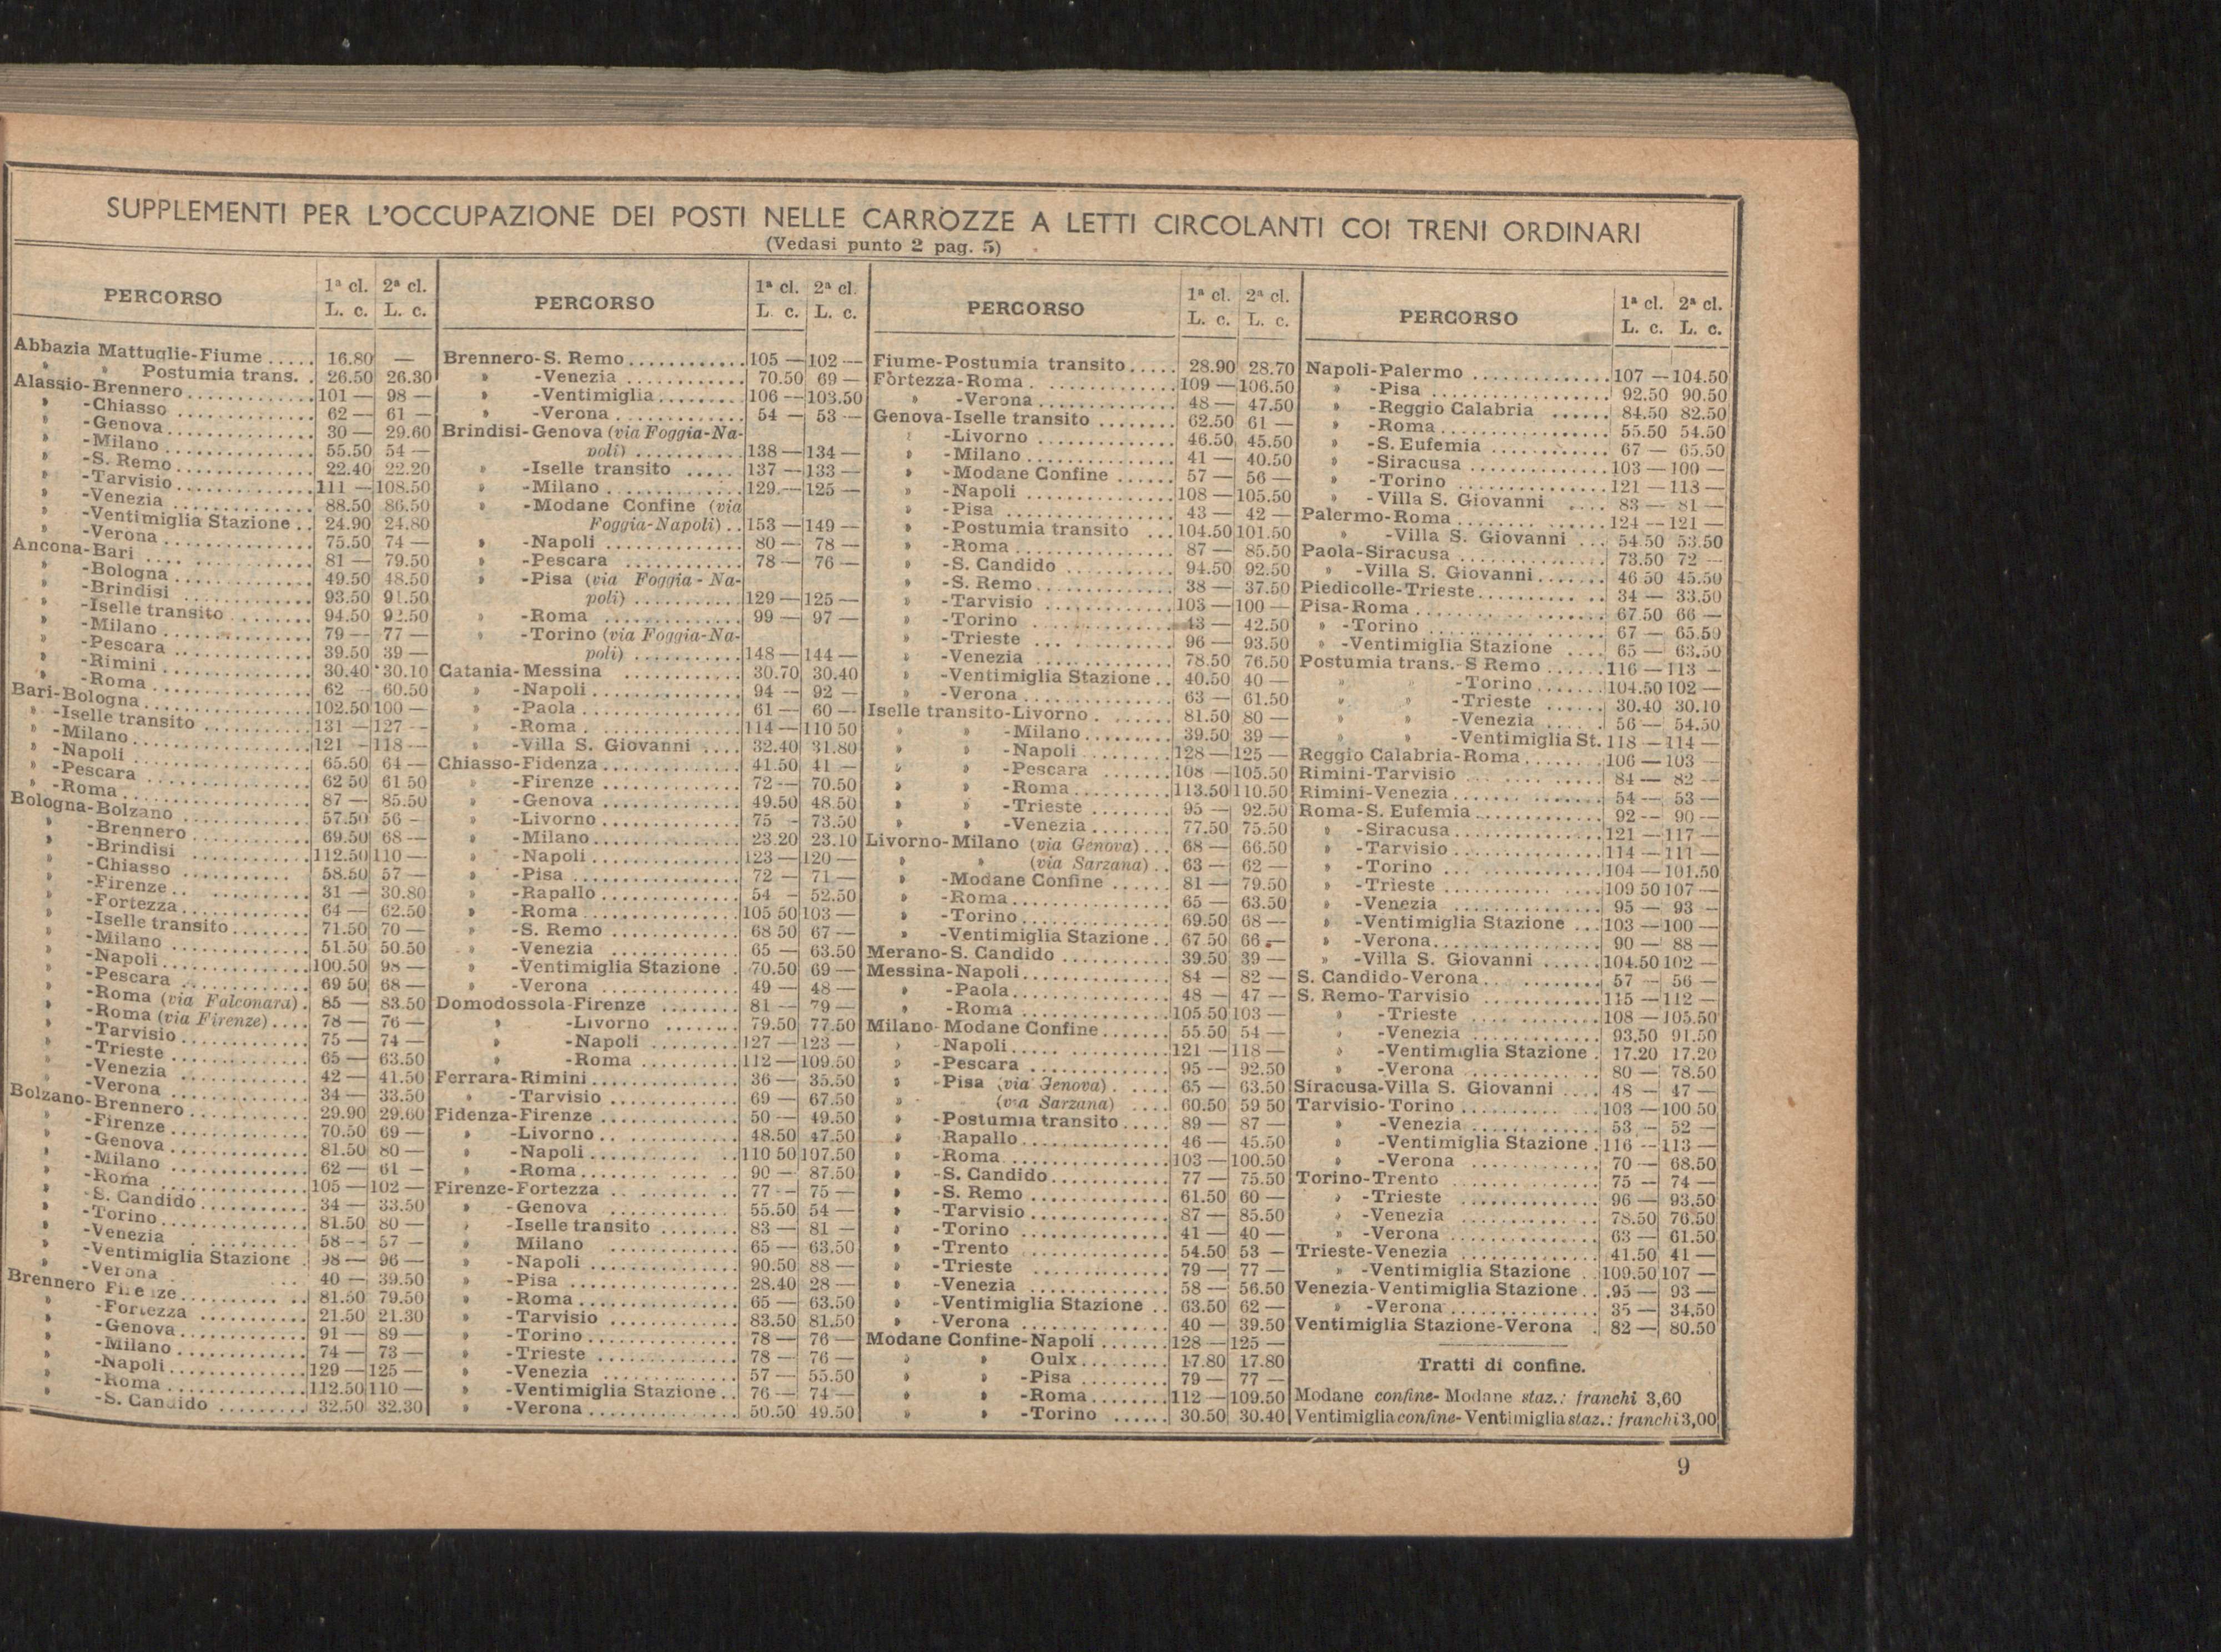 SUPPLEMENTI PER L'OCCUPAZIONE DEI POSTI NELLE CARROZZE A LETTI CIRCOLANTI COI TRENI ORDINARI
(Vedasi punto 2 pag. 5)
PERCORSO 1ª cl. L. c. 2ª cl. L. c.
Abbazia Mattuglie-Fiume ..... 16.80 —
» » Postumia trans. . 26.50 26.30
Alassio-Brennero ..... 101 — 98 —
» -Chiasso ..... 62 — 61 —
» -Genova ..... 30 — 29.60
» -Milano ..... 55.50 54 —
» -S. Remo ..... 22.40 22.20
» -Tarvisio ..... 111 — 108.50
» -Venezia ..... 88.50 86.50
» -Ventimiglia Stazione .. 24.90 24.80
» -Verona ..... 75.50 74 —
Ancona-Bari ..... 81 — 79.50
» -Bologna ..... 49.50 48.50
» -Brindisi ..... 93.50 91.50
» -Iselle transito ..... 94.50 92.50
» -Milano ..... 79 — 77 —
» -Pescara ..... 39.50 39 —
» -Rimini ..... 30.40 30.10
» -Roma ..... 62 — 60.50
Bari-Bologna ..... 102.50 100 —
» -Iselle transito ..... 131 — 127 —
» -Milano ..... 121 — 118 —
» -Napoli ..... 65.50 64 —
» -Pescara ..... 62 50 61 50
» -Roma ..... 87 — 85.50
Bologna-Bolzano ..... 57.50 56 —
» -Brennero ..... 69.50 68 —
» -Brindisi ..... 112.50 110 —
» -Chiasso ..... 58.50 57 —
» -Firenze ..... 31 — 30.80
» -Fortezza ..... 64 — 62.50
» -Iselle transito ..... 71.50 70 —
» -Milano ..... 51.50 50.50
» -Napoli ..... 100.50 98 —
» -Pescara ..... 69 50 68 —
» -Roma (via Falconara) . 85 — 83.50
» -Roma (via Firenze) .... 78 — 76 —
» -Tarvisio ..... 75 — 74 —
» -Trieste ..... 65 — 63.50
» -Venezia ..... 42 — 41.50
» -Verona ..... 34 — 33.50
Bolzano-Brennero ..... 29.90 29.60
» -Firenze ..... 70.50 69 —
» -Genova ..... 81.50 80 —
» -Milano ..... 62 — 61 —
» -Roma ..... 105 — 102 —
» -S. Candido ..... 34 — 33.50
» -Torino ..... 81.50 80 —
» -Venezia ..... 58 — 57 —
» -Ventimiglia Stazione . 98 — 96 —
» -Verona ..... 40 — 39.50
Brennero Firenze ..... 81.50 79.50
» -Fortezza ..... 21.50 21.30
» -Genova ..... 91 — 89 —
» -Milano ..... 74 — 73 —
» -Napoli ..... 129 — 125 —
» -Roma ..... 112.50 110 —
» -S. Candido ..... 32.50 32.30
PERCORSO 1ª cl. L. c. 2ª cl. L. c.
Brennero-S. Remo ..... 105 — 102 —
» -Venezia ..... 70.50 69 —
» -Ventimiglia ..... 106 — 103.50
» -Verona ..... 54 — 53 —
Brindisi-Genova (via Foggia-Na-
poli) ..... 138 — 134 —
» -Iselle transito ..... 137 — 133 —
» -Milano ..... 129 — 125 —
» -Modane Confine (via
Foggia-Napoli) .. 153 — 149 —
» -Napoli ..... 80 — 78 —
» -Pescara ..... 78 — 76 —
» -Pisa (via Foggia-Na-
poli) ..... 129 — 125 —
» -Roma ..... 99 — 97 —
» -Torino (via Foggia-Na-
poli) ..... 148 — 144 —
Catania-Messina ..... 30.70 30.40
» -Napoli ..... 94 — 92 —
» -Paola ..... 61 — 60 —
» -Roma ..... 114 — 110 50
» -Villa S. Giovanni .... 32.40 31.80
Chiasso-Fidenza ..... 41.50 41 —
» -Firenze ..... 72 — 70.50
» -Genova ..... 49.50 48.50
» -Livorno ..... 75 — 73.50
» -Milano ..... 23.20 23.10
» -Napoli ..... 123 — 120 —
» -Pisa ..... 72 — 71 —
» -Rapallo ..... 54 — 52.50
» -Roma ..... 105 50 103 —
» -S. Remo ..... 68 50 67 —
» -Venezia ..... 65 — 63.50
» -Ventimiglia Stazione . 70.50 69 —
» -Verona ..... 49 — 48 —
Domodossola-Firenze ..... 81 — 79 —
» -Livorno ..... 79.50 77.50
» -Napoli ..... 127 — 123 —
» -Roma ..... 112 — 109.50
Ferrara-Rimini ..... 36 — 35.50
» -Tarvisio ..... 69 — 67.50
Fidenza-Firenze ..... 50 — 49.50
» -Livorno ..... 48.50 47.50
» -Napoli ..... 110 50 197.50
» -Roma ..... 90 — 87.50
Firenze-Fortezza ..... 77 — 75 —
» -Genova ..... 55.50 54 —
» -Iselle transito ..... 83 — 81 —
» Milano ..... 65 — 63.50
» -Napoli ..... 90.50 88 —
» -Pisa ..... 28.40 28 —
» -Roma ..... 65 — 63.50
» -Tarvisio ..... 83.50 81.50
» -Torino ..... 78 — 76 —
» -Trieste ..... 78 — 76 —
» -Venezia ..... 57 — 55.50
» -Ventimiglia Stazione .. 76 — 74 —
» -Verona ..... 50.50 49.50
PERCORSO 1ª cl. L. c. 2ª cl. L. c.
Fiume-Postumia transito ..... 28.90 28.70
Fortezza-Roma ..... 109 — 106.50
» -Verona ..... 48 — 47.50
Genova-Iselle transito ..... 62.50 61 —
» -Livorno ..... 46.50 45.50
» -Milano ..... 41 — 40.50
» -Modane Confine ..... 57 — 56 —
» -Napoli ..... 108 — 105.50
» -Pisa ..... 43 — 42 —
» -Postumia transito ... 104.50 101.50
» -Roma ..... 87 — 85.50
» -S. Candido ..... 94.50 92.50
» -S. Remo ..... 38 — 37.50
» -Tarvisio ..... 103 — 100 —
» -Torino ..... 43 — 42.50
» -Trieste ..... 96 — 93.50
» -Venezia ..... 78.50 76.50
» -Ventimiglia Stazione .. 40.50 40 —
» -Verona ..... 63 — 61.50
Iselle transito-Livorno ..... 81.50 80 —
» » -Milano ..... 39.50 39 —
» » -Napoli ..... 128 — 125 —
» » -Pescara ..... 108 — 105.50
» » -Roma ..... 113.50 110.50
» » -Trieste ..... 95 — 92.50
» » -Venezia ..... 77.50 75.50
Livorno-Milano (via Genova) ... 68 — 66.50
» » (via Sarzana) .. 63 — 62 —
» -Modane Confine ..... 81 — 79.50
» -Roma ..... 65 — 63.50
» -Torino ..... 69.50 68 —
» -Ventimiglia Stazione .. 67.50 66 —
Merano-S. Candido ..... 39.50 39 —
Messina-Napoli ..... 84 — 82 —
» -Paola ..... 48 — 47 —
» -Roma ..... 105 50 103 —
Milano-Modane Confine ..... 55.50 54 —
» -Napoli ..... 121 — 118 —
» -Pescara ..... 95 — 92.50
» -Pisa (via Genova) ..... 65 — 63.50
» (via Sarzana) .... 60.50 59 50
» -Postumia transito ..... 89 — 87 —
» Rapallo ..... 46 — 45.50
» -Roma ..... 103 — 100.50
» -S. Candido ..... 77 — 75.50
» -S. Remo ..... 61.50 60 —
» -Tarvisio ..... 87 — 85.50
» -Torino ..... 41 — 40 —
» -Trento ..... 54.50 53 —
» -Trieste ..... 79 — 77 —
» -Venezia ..... 58 — 56.50
» -Ventimiglia Stazione .. 63.50 62 —
» -Verona ..... 40 — 39.50
Modane Confine-Napoli ..... 128 — 125 —
» » Oulx ..... 17.80 17.80
» » -Pisa ..... 79 — 77 —
» » -Roma ..... 112 — 109.50
» » -Torino ..... 30.50 30.40
PERCORSO 1ª cl. L. c. 2ª cl. L. c.
Napoli-Palermo ..... 107 — 104.50
» -Pisa ..... 92.50 90.50
» -Reggio Calabria ..... 84.50 82.50
» -Roma ..... 55.50 54.50
» -S. Eufemia ..... 67 — 65.50
» -Siracusa ..... 103 — 100 —
» -Torino ..... 121 — 118 —
» -Villa S. Giovanni .... 83 — 81 —
Palermo-Roma ..... 124 — 121 —
» -Villa S. Giovanni ... 54.50 53.50
Paola-Siracusa ..... 73.50 72 —
» -Villa S. Giovanni ..... 46 50 45.50
Piedicolle-Trieste ..... 34 — 33.50
Pisa-Roma ..... 67.50 66 —
» -Torino ..... 67 — 65.50
» -Ventimiglia Stazione .... 65 — 63.50
Postumia trans.-S Remo ..... 116 — 113 —
» » -Torino ..... 104.50 102 —
» » -Trieste ..... 30.40 30.10
» » -Venezia ..... 56 — 54.50
» » -Ventimiglia St. 118 — 114 —
Reggio Calabria-Roma ..... 106 — 103 —
Rimini-Tarvisio ..... 84 — 82 —
Rimini-Venezia ..... 54 — 53 —
Roma-S. Eufemia ..... 92 — 90 —
» -Siracusa ..... 121 — 117 —
» -Tarvisio ..... 114 — 111 —
» -Torino ..... 104 — 101.50
» -Trieste ..... 109 50 107 —
» -Venezia ..... 95 — 93 —
» -Ventimiglia Stazione ... 103 — 100 —
» -Verona ..... 90 — 88 —
» -Villa S. Giovanni ..... 104.50 102 —
S. Candido-Verona ..... 57 — 56 —
S. Remo-Tarvisio ..... 115 — 112 —
» -Trieste ..... 108 — 105.50
» -Venezia ..... 93.50 91.50
» -Ventimiglia Stazione . 17.20 17.20
» -Verona ..... 80 — 78.50
Siracusa-Villa S. Giovanni .... 48 — 47 —
Tarvisio-Torino ..... 103 — 100 50
» -Venezia ..... 53 — 52 —
» -Ventimiglia Stazione . 116 — 113 —
» -Verona ..... 70 — 68.50
Torino-Trento ..... 75 — 74 —
» -Trieste ..... 96 — 93.50
» -Venezia ..... 78.50 76.50
» -Verona ..... 63 — 61.50
Trieste-Venezia ..... 41.50 41 —
» -Ventimiglia Stazione .. 109.50 107 —
Venezia-Ventimiglia Stazione .. 95 — 93 —
» -Verona ..... 35 — 34.50
Ventimiglia Stazione-Verona . 82 — 80.50
Tratti di confine.
Modane confine-Modane staz.: franchi 3,60
Ventimiglia confine-Ventimiglia staz.: franchi 3,00
9